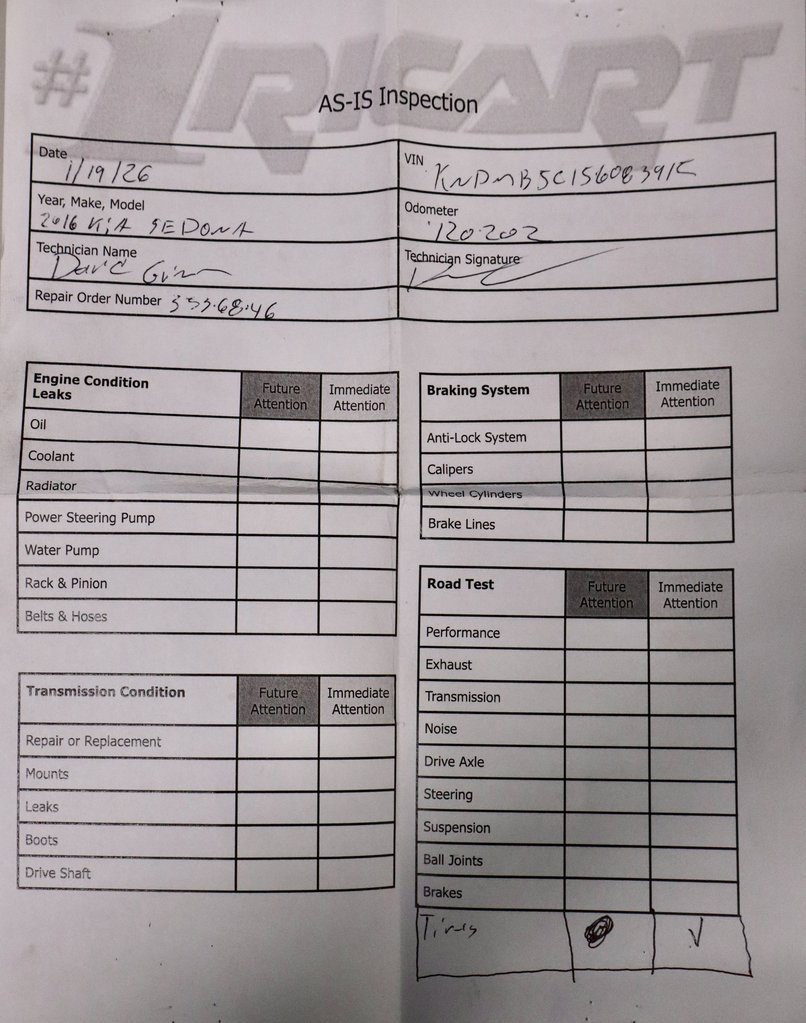 #1 RICART
AS-IS Inspection
Date 1/19/26
VIN KNDMB5C1
Year, Make, Model 2016 KIA SEDONA
Odometer 120202
Technician Name David
Technician Signature
Repair Order Number
Engine Condition Leaks Future Attention Immediate Attention
Oil
Coolant
Radiator
Power Steering Pump
Water Pump
Rack & Pinion
Belts & Hoses
Braking System Future Attention Immediate Attention
Anti-Lock System
Calipers
Wheel Cylinders
Brake Lines
Transmission Condition Future Attention Immediate Attention
Repair or Replacement
Mounts
Leaks
Boots
Drive Shaft
Road Test Future Attention Immediate Attention
Performance
Exhaust
Transmission
Noise
Drive Axle
Steering
Suspension
Ball Joints
Brakes
Tires ✓